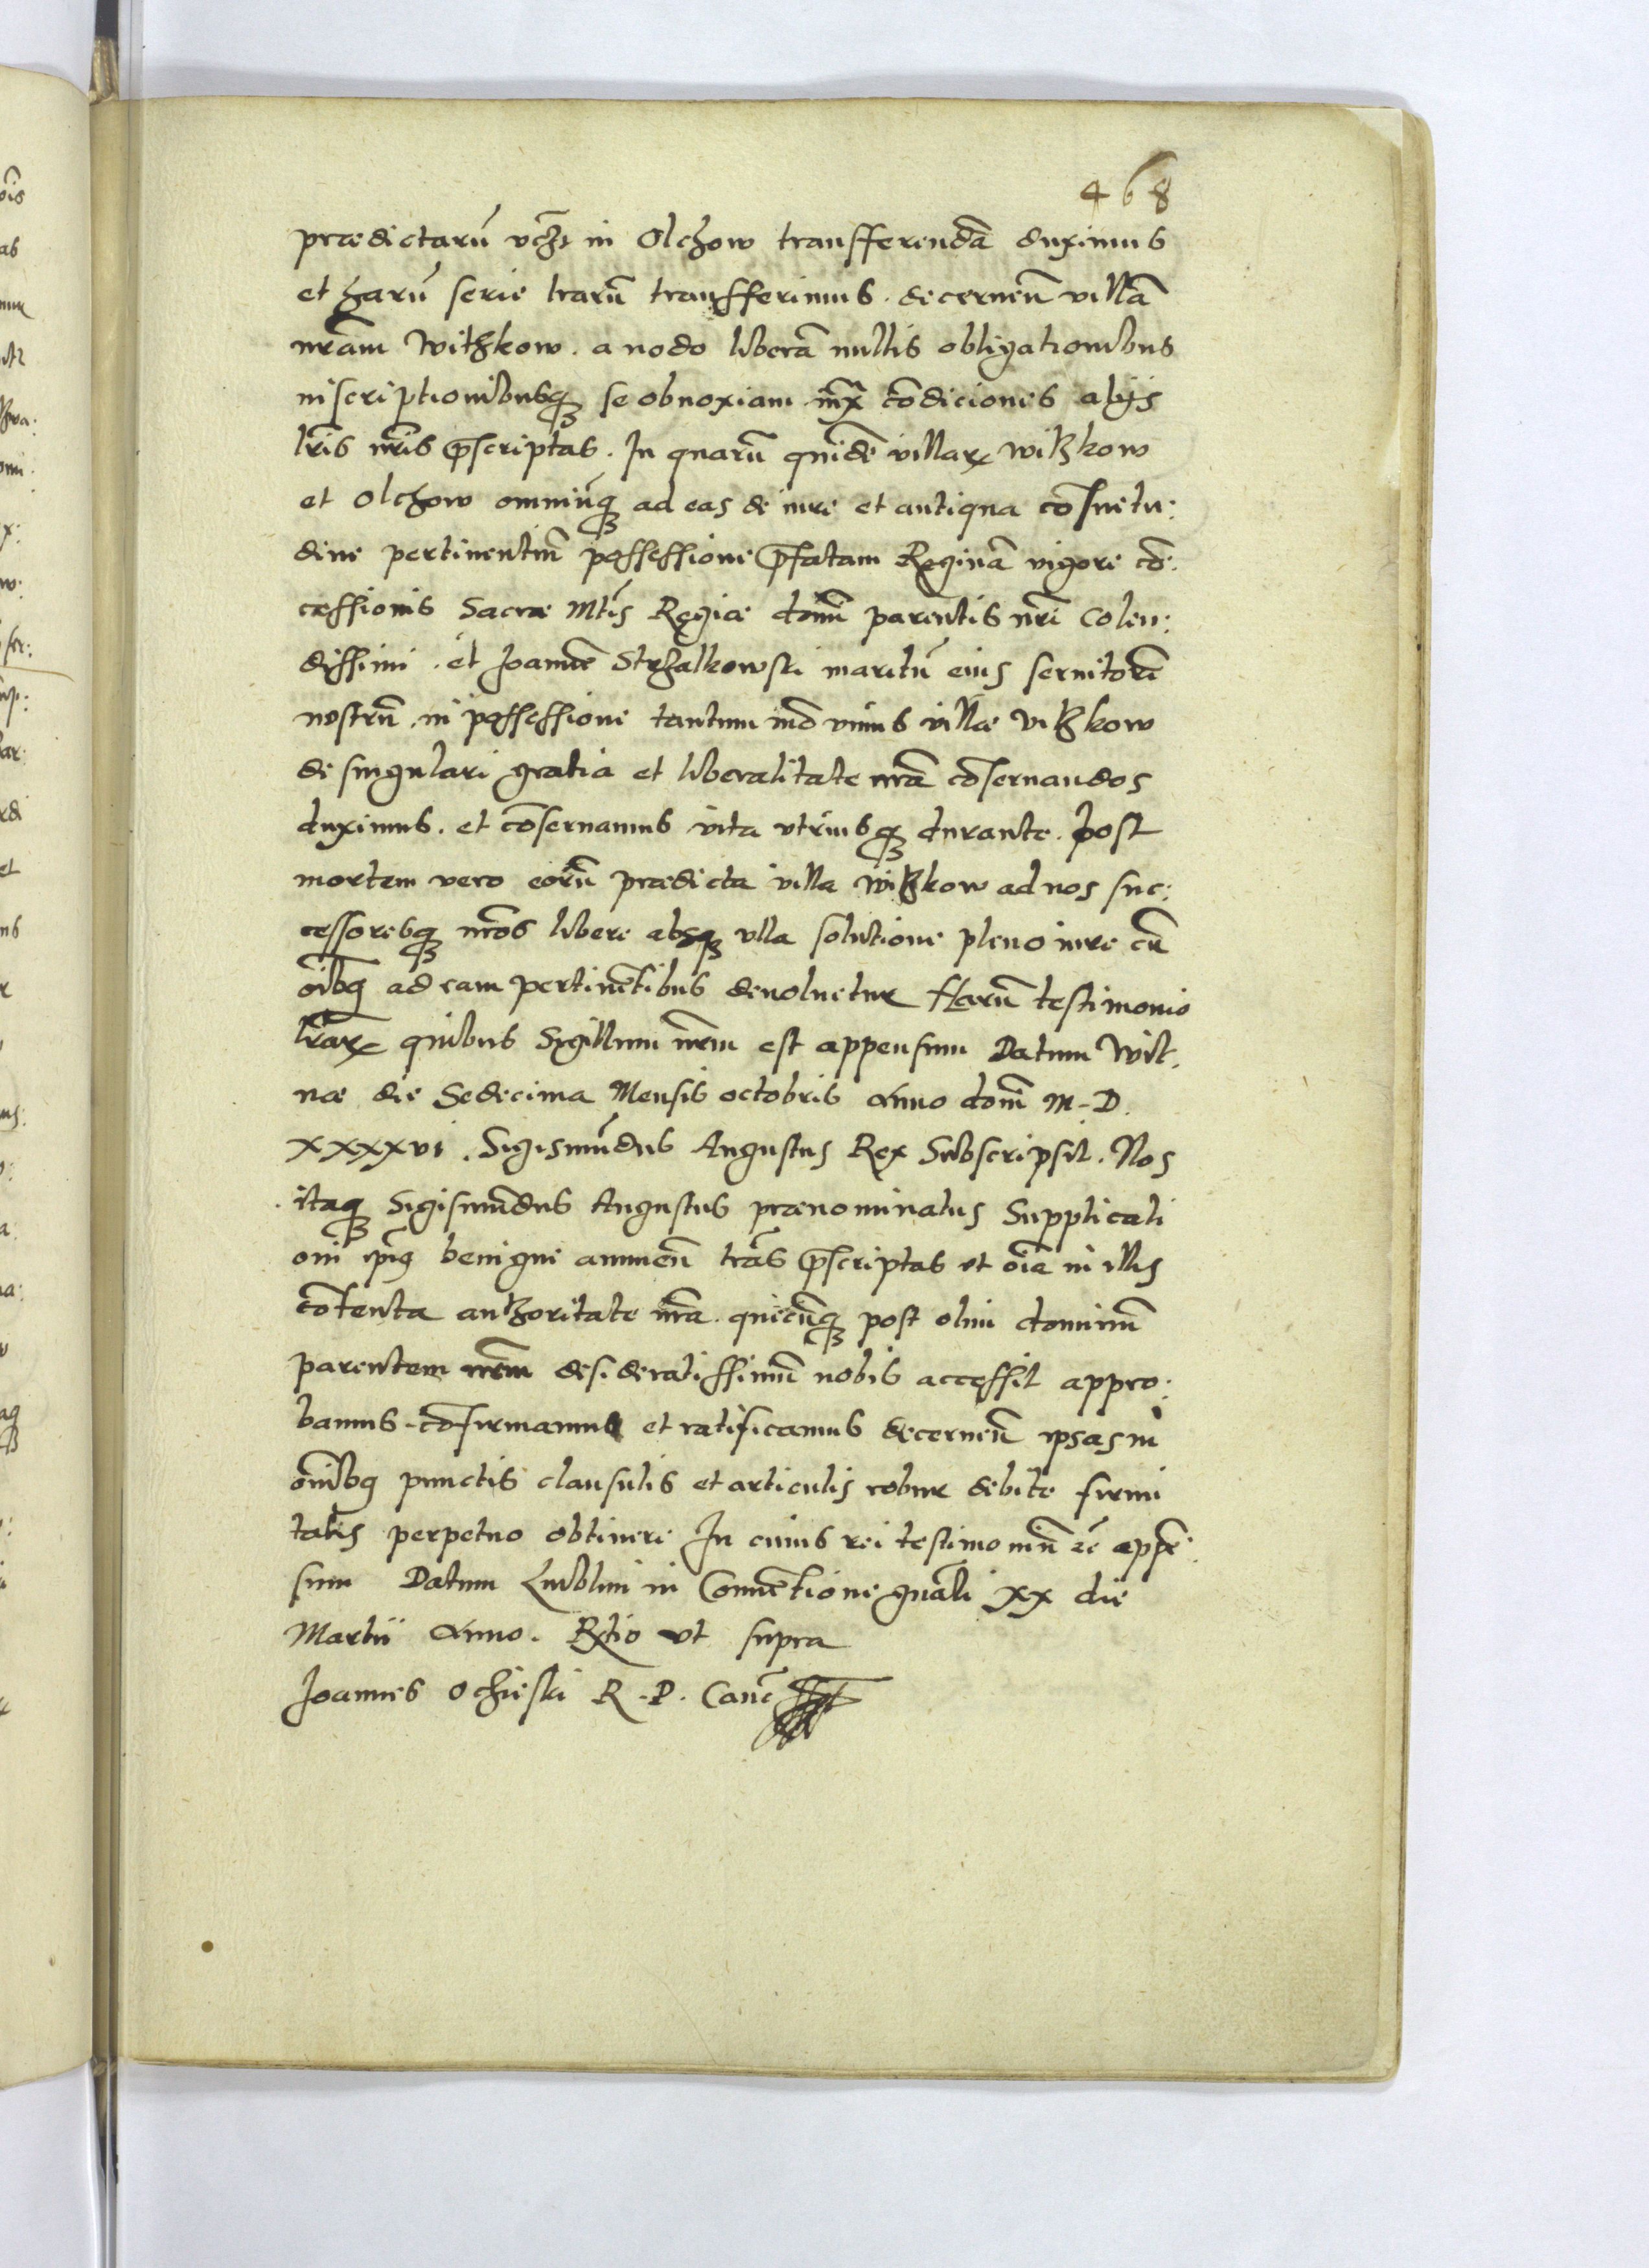 468
prædictarū vcȝt in Olchow transfferendā duximus
et harū serie lrarū transfferimus. decernen̄ villā
nr̄am Withkow. a nodo liberā nullis obligationibus
inscriptionibusqꝫ se obnoxiam condiciones alijs
lr̄is nr̄is p̄scriptas. In quarū quidē villarꝝ witkow
et Olchow omniūqꝫ ad eas de iure et antiqua cōsuetu:
dine pertinentiū possessione p̄fatam Reginā vigore cō:
cæssionis Sacræ Mt̄is Regiæ domī parentis nr̄i colen:
dissimi. et Joannē Strzalkowski maritū eius seruitorē
nostrū. in possessione tantum mō vnius villæ vitkow
de singulari gratia et liberalitate nr̄a cōseruandos
duximus. et cōseruamus vita vtriusqꝫ durante. post
mortem vero eorū prædicta villa witkow ad nos suc:
cessoresqꝫ nr̄os libere absqꝫ vlla solutione pleno iure cū
oībq ad eam pertinētibus deuoluetur Harū testimonio
lr̄arꝝ quibus Sigillum nr̄um est appensum Datum Wil:
næ die Sedecima Mensis octobris Anno domī M-D.
XXXXVI. Sigismūdus Augustus Rex Subscripsit. Nos
itaqꝫ Sigismūdus Augustus prænominatus Supplicati
oni benigne annuen̄ lrās p̄scriptas et oīa in illis
cōtenta authoritate nr̄a. quæcūqꝫ post olim dominū
parentem nr̄um desideratissimū nobis accessit appro:
bamus. cōfirmamus et ratificamus decernen̄ ipsas in
om̄ibq punctis clausulis et articulis robur debite firmi
tatis perpetuo obtinere In cuius rei testimoniū &c̄ appē:
sum Datum Lublini in Conuētione gn̄ali XX die
Martii Anno. Rxtio vt supra
Joannes Ochieski R. P. Canc̄